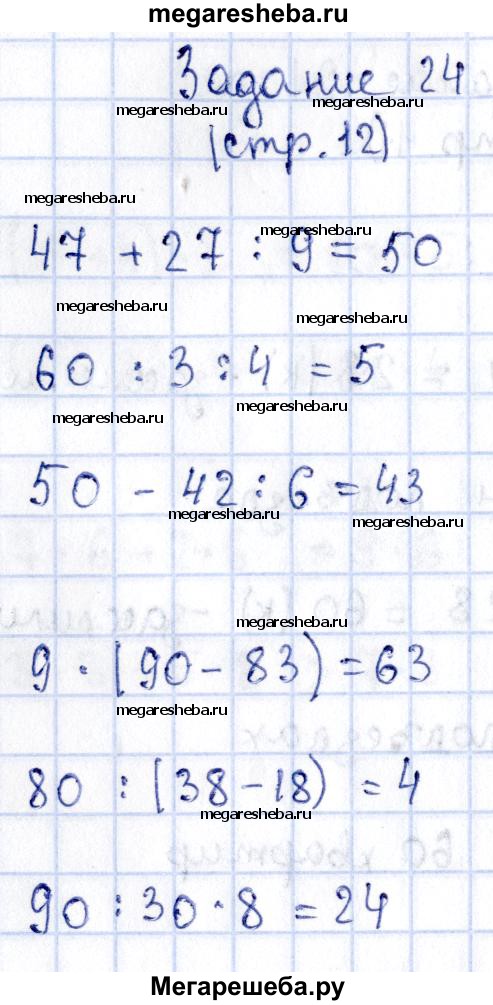 megaresheba.ru
Задание 24
megaresheba.ru megaresheba.ru
(стр. 12)
megaresheba.ru
megaresheba.ru
47 + 27 : 9 = 50
megaresheba.ru megaresheba.ru
60 : 3 : 4 = 5
megaresheba.ru megaresheba.ru
50 - 42 : 6 = 43
megaresheba.ru megaresheba.ru
megaresheba.ru
9 · (90 - 83) = 63
megaresheba.ru
80 : (38 - 18) = 4
megaresheba.ru
90 : 30 · 8 = 24
Мегарешеба.ру